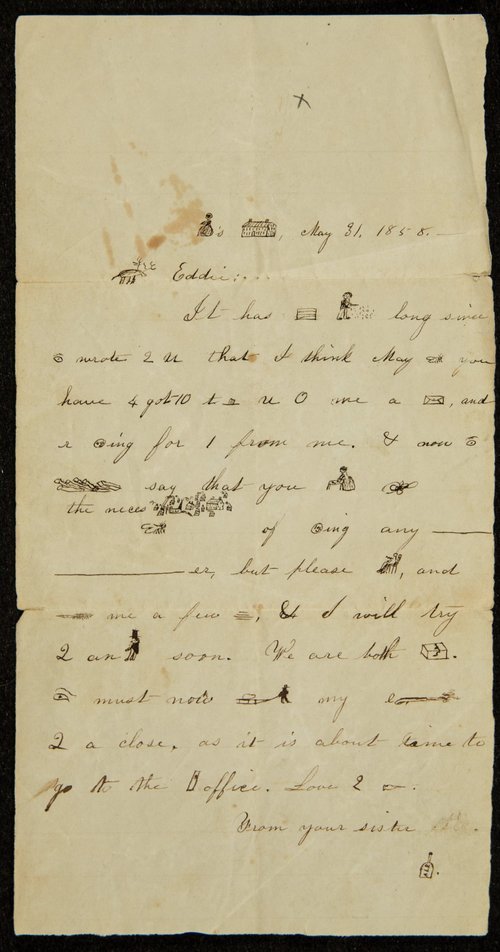 's , May 31. 1858.
Eddie:
It has long since
wrote 2 U that I think May you
have 4 got-10 U O me a , and
r ing for 1 from me. & now
say that you
the neces
of ing any
er, but please , and
me a few , & I will try
2 an soon. We are both .
must now my e
2 a close, as it is about time to
go to the office. Love 2 .
From your sister